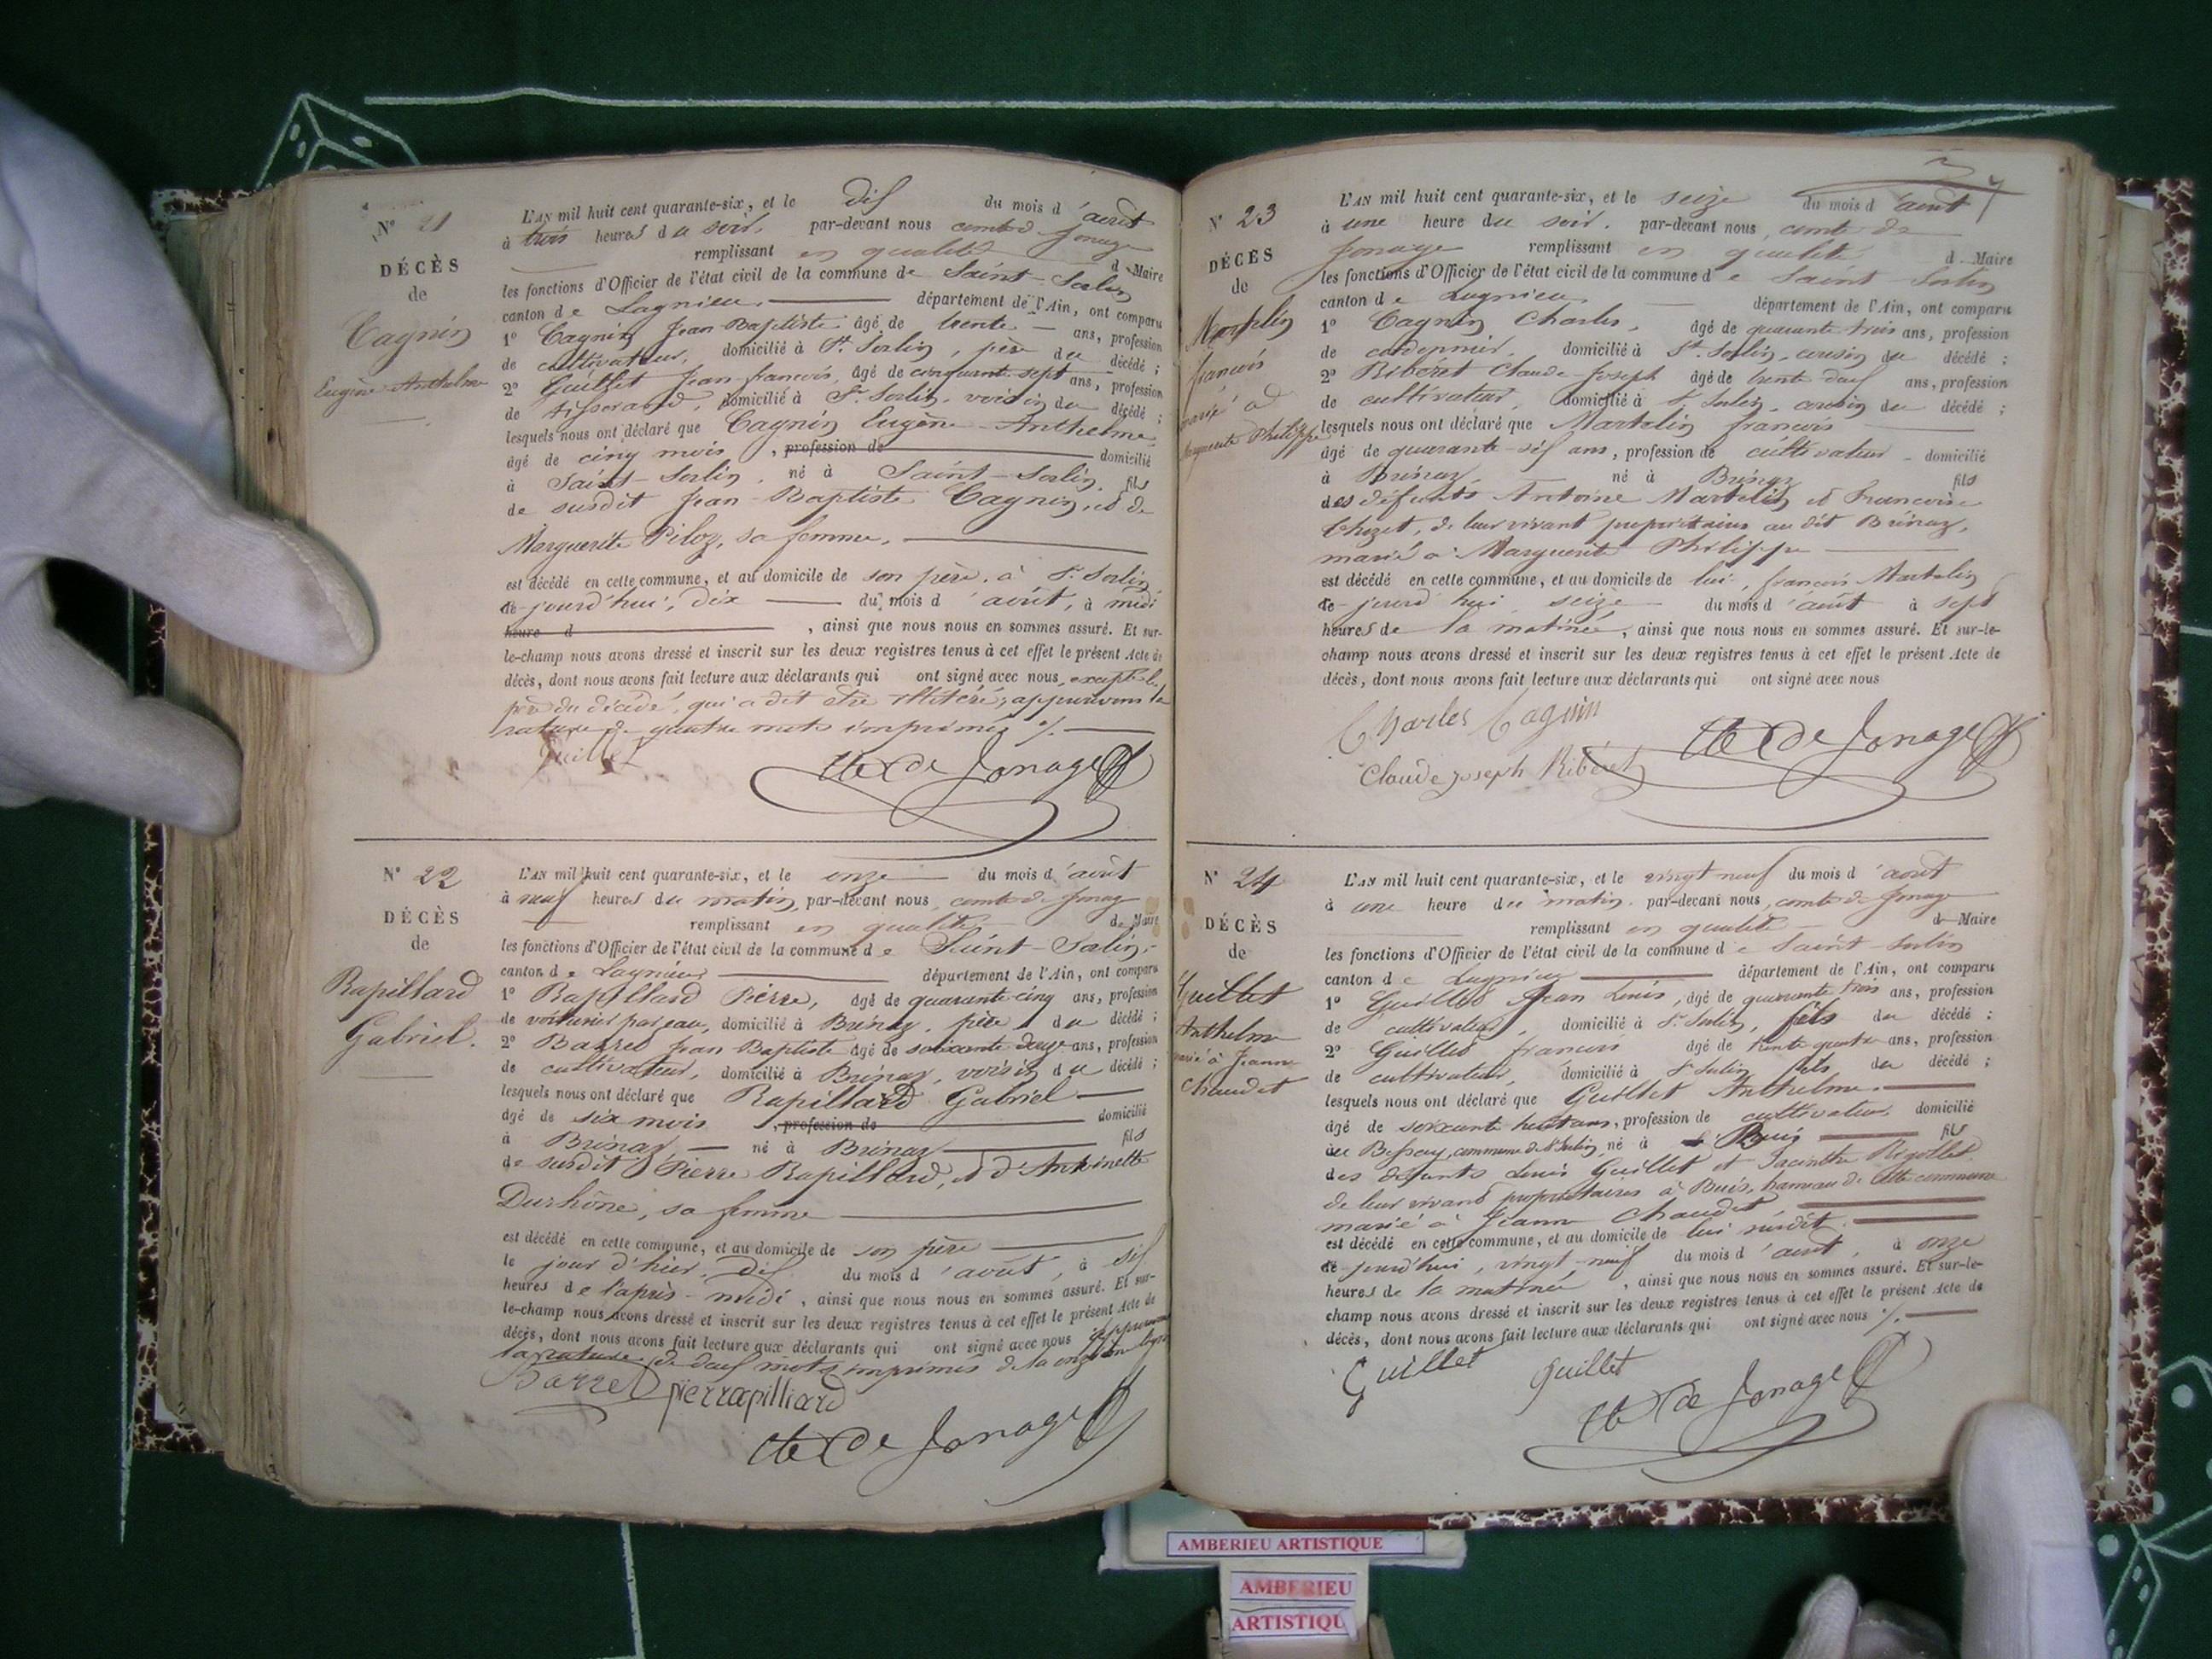 N° 21
DÉCÈS
de
Cagnin
Eugène Anthelme
L'AN mil huit cent quarante-six, et le dix du mois d'août
à trois heures du soir, par-devant nous comte de Jonage
remplissant en qualité d Maire
les fonctions d'Officier de l'état civil de la commune de Saint-Sorlin
canton de Lagnieu, département de l'Ain, ont comparu
1° Cagnin Jean-Baptiste âgé de trente ans, profession
de cultivateur, domicilié à St. Sorlin, père du décédé ;
2° Guillet Jean-françois, âgé de cinquante sept ans, profession
de tisserand, domicilié à St. Sorlin, voisin du décédé ;
lesquels nous ont déclaré que Cagnin Eugène-Anthelme
âgé de cinq mois, profession de domicilié
à Saint-Sorlin, né à Saint-Sorlin, fils
de susdit Jean-Baptiste Cagnin, et de
Marguerite Piloz, sa femme,
est décédé en cette commune, et au domicile de son père, à St. Sorlin
ce jourd'hui, dix du mois d'août, à midi
heure d , ainsi que nous nous en sommes assuré. Et sur-
le-champ nous avons dressé et inscrit sur les deux registres tenus à cet effet le présent Acte de
décès, dont nous avons fait lecture aux déclarants qui ont signé avec nous, excepté le
père du décédé, qui a dit être illitéré, approuvons la
rature de quatre mots imprimés ./.
Guillet
Cte de Jonage
N° 22
DÉCÈS
de
Rapillard
Gabriel.
L'AN mil huit cent quarante-six, et le onze du mois d'août
à neuf heures du matin, par-devant nous, comte de Jonage
remplissant en qualité de Maire
les fonctions d'Officier de l'état civil de la commune de Saint-Sorlin,
canton de Lagnieu département de l'Ain, ont comparu
1° Rapillard Pierre, âgé de quarante-cinq ans, profession
de voiturier par eau, domicilié à Brénaz, père du décédé ;
2° Barret Jean Baptiste âgé de soixante douze ans, profession
de cultivateur, domicilié à Brénaz, voisin du décédé ;
lesquels nous ont déclaré que Rapillard Gabriel
âgé de six mois, profession de domicilié
à Brénaz né à Brénaz fils
de susdit Pierre Rapillard, et d'Antoinette
Durhône, sa femme
est décédé en cette commune, et au domicile de son père
le jour d'hier, dix du mois d'août, à six
heures de l'après-midi, ainsi que nous nous en sommes assuré. Et sur-
le-champ nous avons dressé et inscrit sur les deux registres tenus à cet effet le présent Acte de
décès, dont nous avons fait lecture aux déclarants qui ont signé avec nous approuvons
la rature de deux mots imprimés de la onzième ligne
Barret pierrapilliard
Cte de Jonage
7
N° 23
DÉCÈS
de
Martelin
francois
marié à
Marguerite Philippe
L'AN mil huit cent quarante-six, et le seize du mois d'août
à une heure du soir, par-devant nous, comte de
Jonage remplissant en qualité d Maire
les fonctions d'Officier de l'état civil de la commune de Saint-Sorlin
canton de Lagnieu, département de l'Ain, ont comparu
1° Cagnin Charles, âgé de quarante trois ans, profession
de cordonnier, domicilié à St. Sorlin, cousin du décédé ;
2° Riberet Claude-Joseph âgé de trente deux ans, profession
de cultivateur, domicilié à St. Sorlin, cousin du décédé ;
lesquels nous ont déclaré que Martelin francois
âgé de quarante-six ans, profession de cultivateur domicilié
à Brénaz, né à Brénaz fils
des défunts Antoine Martelin et Francoise
Chozet, de leur vivant propriétaires au dit Brénaz,
marié à Marguerite Philippe
est décédé en cette commune, et au domicile de lui, francois Martelin
ce jourd'hui seize du mois d'août à sept
heures de la matinée, ainsi que nous nous en sommes assuré. Et sur-le-
champ nous avons dressé et inscrit sur les deux registres tenus à cet effet le présent Acte de
décès, dont nous avons fait lecture aux déclarants qui ont signé avec nous
Charles Cagnin
Cte de Jonage
Claude joseph Ribéret
N° 24
DÉCÈS
de
Guillet
Anthelme
marié à Jeanne
Chaudet
L'AN mil huit cent quarante-six, et le vingt neuf du mois d'août
à une heure du matin, par-devant nous, comte de Jonage
remplissant en qualité d Maire
les fonctions d'Officier de l'état civil de la commune de Saint-Sorlin
canton de Lagnieu département de l'Ain, ont comparu
1° Guillet Jean Louis, âgé de quarante trois ans, profession
de cultivateur, domicilié à St. Sorlin, fils du décédé ;
2° Guillet francois âgé de trente quatre ans, profession
de cultivateur, domicilié à St Sorlin fils du décédé ;
lesquels nous ont déclaré que Guillet Anthelme.
âgé de soixante huit ans, profession de cultivateur domicilié
au Bessay, commune de St Sorlin, né à Buis fils
des défunts Louis Guillet et Jacinthe Rigollet
de leur vivant propriétaires à Buis, hameau de cette commune
marié à Jeanne Chaudet
est décédé en cette commune, et au domicile de lui susdit.
ce jourd'hui, vingt-neuf du mois d'août, à onze
heures de la matinée, ainsi que nous nous en sommes assuré. Et sur-le-
champ nous avons dressé et inscrit sur les deux registres tenus à cet effet le présent Acte de
décès, dont nous avons fait lecture aux déclarants qui ont signé avec nous ./.
Guillet Guillet
Cte de Jonage
AMBERIEU ARTISTIQUE
AMBERIEU
ARTISTIQU